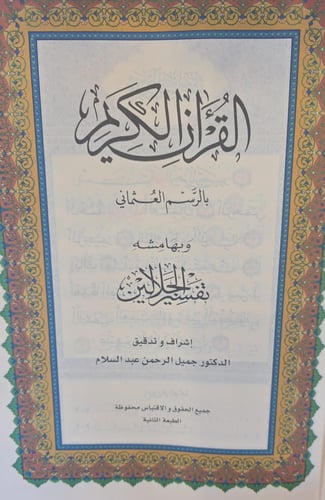 القرآن الكريم
بالرسم العثماني
وبهامشه
تفسير الجلالين
إشراف و تدقيق
الدكتور جميل الرحمن عبد السلام
جميع الحقوق و الاقتباس محفوظة
الطبعة الثانية